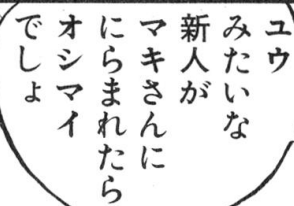 ユウ
みたいな
新人が
マキさんに
にらまれたら
オシマイ
でしょ